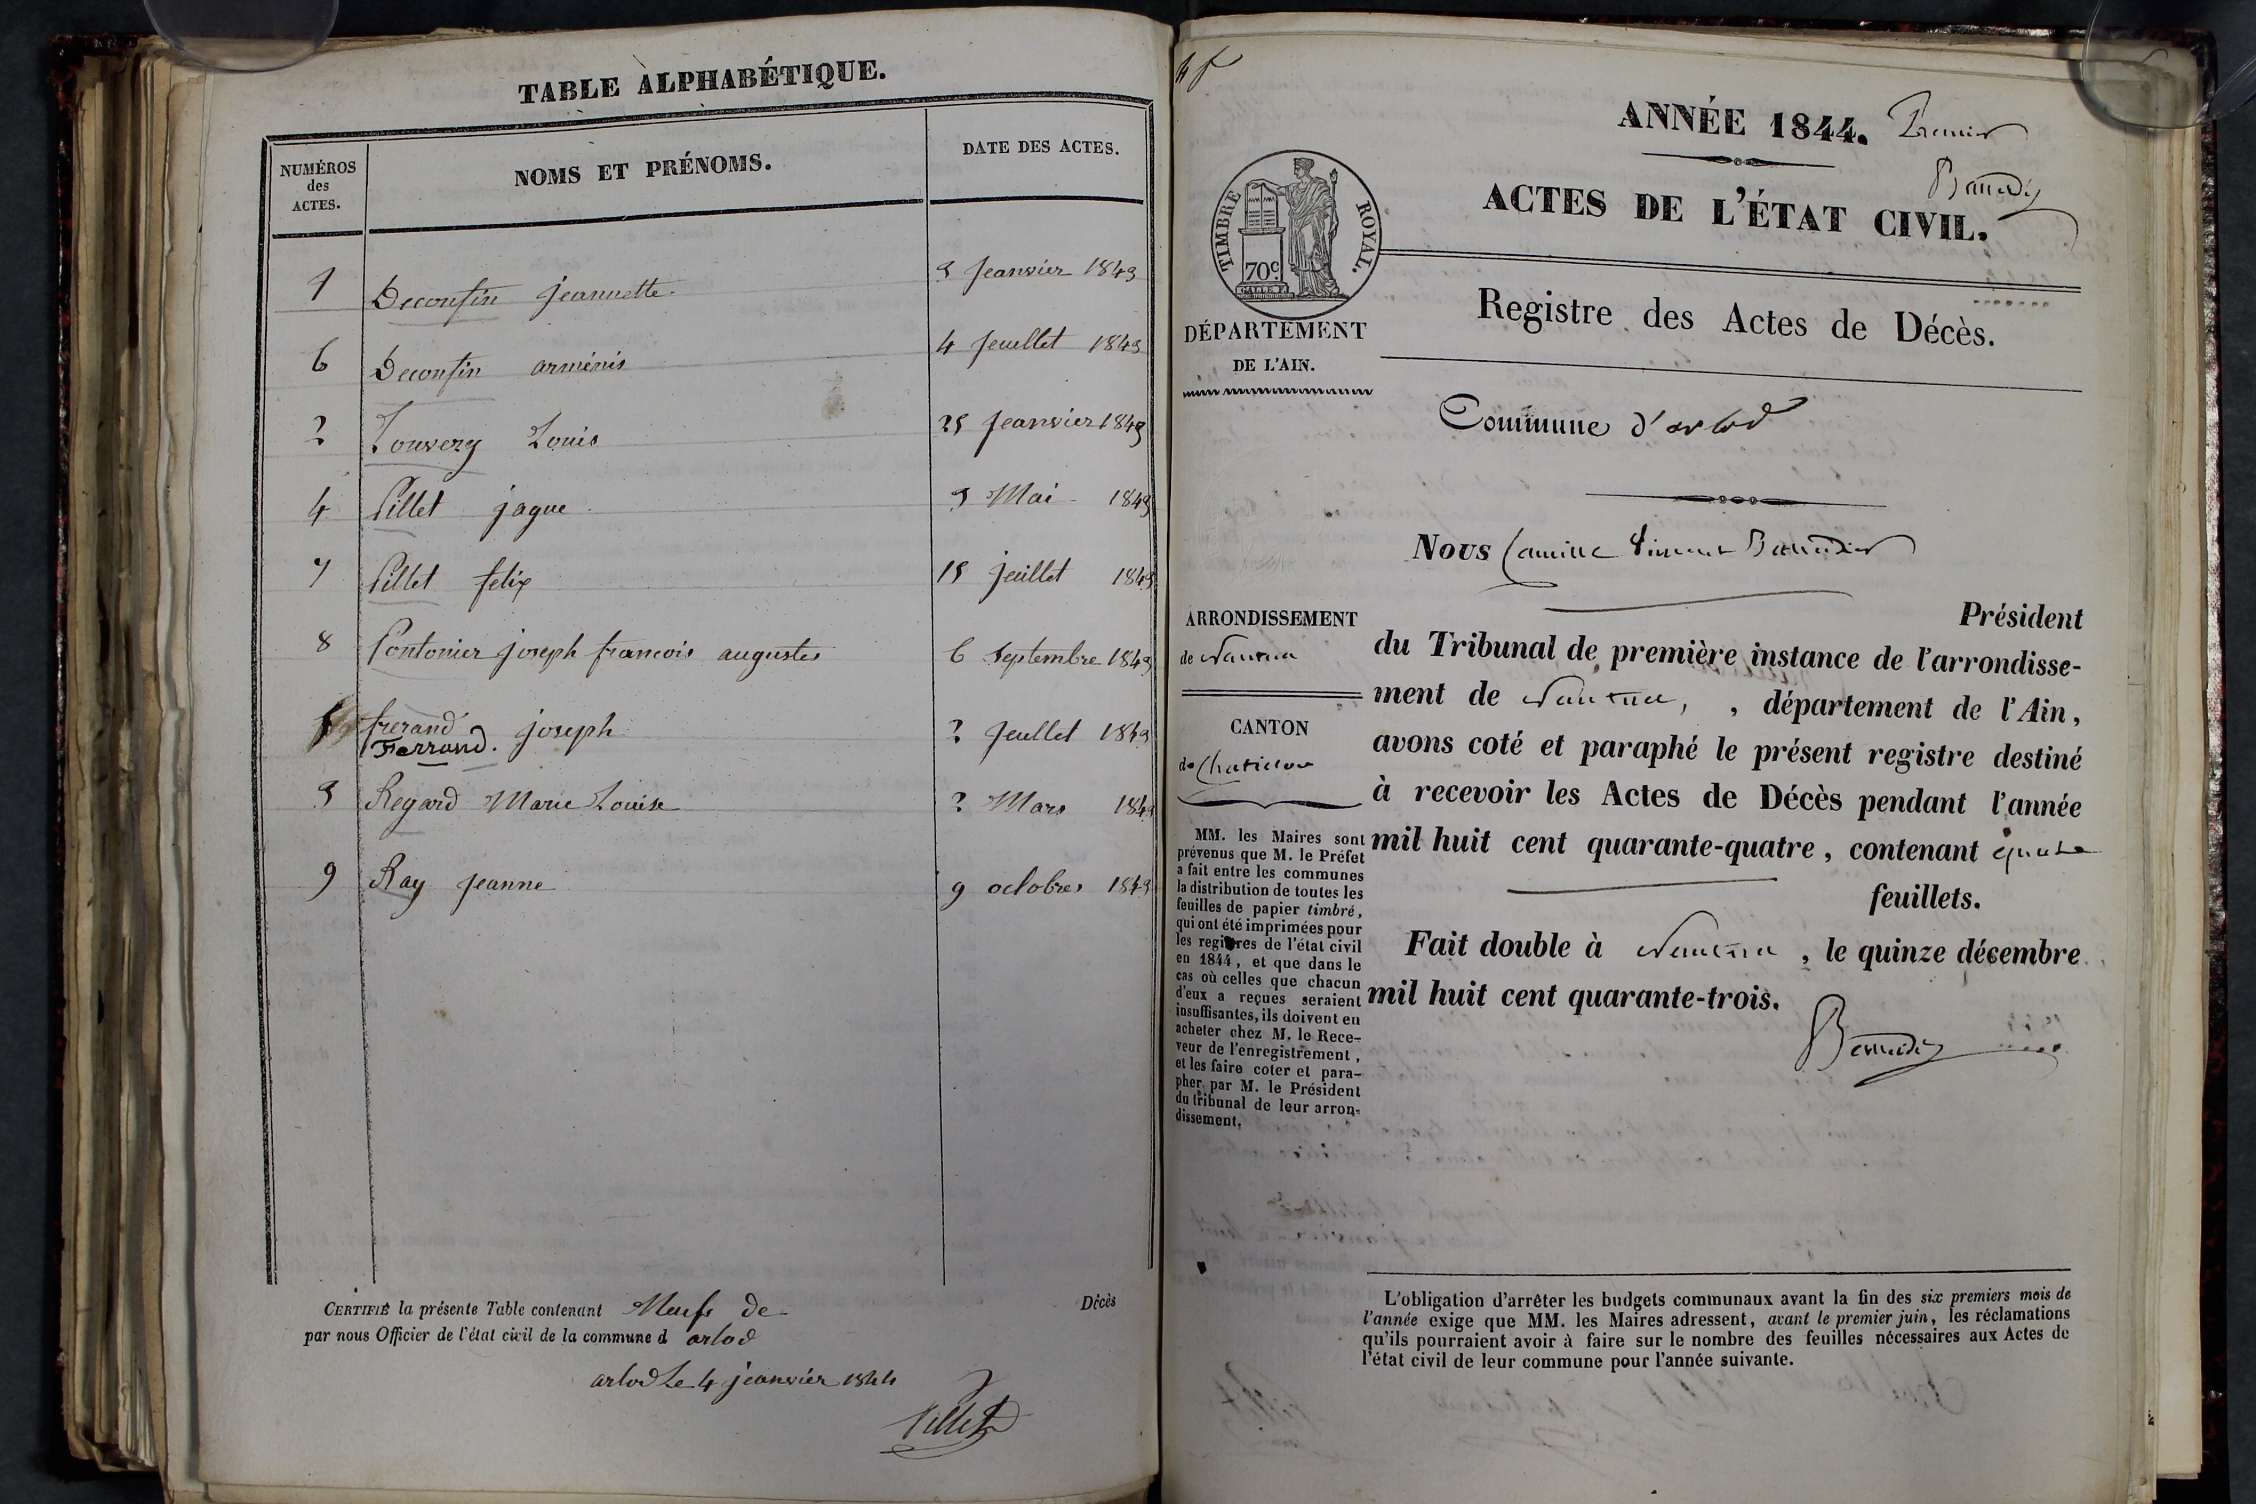 TABLE ALPHABÉTIQUE.
NUMÉROS
des
ACTES.
NOMS ET PRÉNOMS.
DATE DES ACTES.
1 Deconfin jeannette 3 jeanvier 1843
6 Deconfin arménis 4 jeuillet 1843
2 Louis 25 jeanvier 1843
4 Pillet jaque 3 Mai 1843
7 Pillet felix 15 jeuillet 1843
8 Pontonier joseph francois augustes 6 septembre 1843
5 frerand joseph 2 jeuillet 1843
Ferrand.
3 Regard Marie Louise 2 Mars 1843
9 Ray jeanne 9 octobres 1843
CERTIFIÉ la présente Table contenant Neufs de Décès
par nous Officier de l'état civil de la commune d arlod
arlod Le 4 jeanvier 1844
Pillet
ANNÉE 1844. Premier
ACTES DE L'ÉTAT CIVIL.
TIMBRE ROYAL.
70c.
Registre des Actes de Décès.
DÉPARTEMENT
DE L'AIN.
Commune d'arlod
Nous Camille Vincent
Président
du Tribunal de première instance de l'arrondisse-
ment de Nantua, , département de l'Ain,
avons coté et paraphé le présent registre destiné
à recevoir les Actes de Décès pendant l'année
mil huit cent quarante-quatre, contenant quatre
feuillets.
Fait double à Nantua, le quinze décembre
mil huit cent quarante-trois.
ARRONDISSEMENT
de Nantua
CANTON
de Chatillon
MM. les Maires sont
prévenus que M. le Préfet
a fait entre les communes
la distribution de toutes les
feuilles de papier timbré,
qui ont été imprimées pour
les registres de l'état civil
en 1844, et que dans le
cas où celles que chacun
d'eux a reçues seraient
insuffisantes, ils doivent en
acheter chez M. le Rece-
veur de l'enregistrement,
et les faire coter et para-
pher par M. le Président
du tribunal de leur arron-
dissement.
L'obligation d'arrêter les budgets communaux avant la fin des six premiers mois de
l'année exige que MM. les Maires adressent, avant le premier juin, les réclamations
qu'ils pourraient avoir à faire sur le nombre des feuilles nécessaires aux Actes de
l'état civil de leur commune pour l'année suivante.